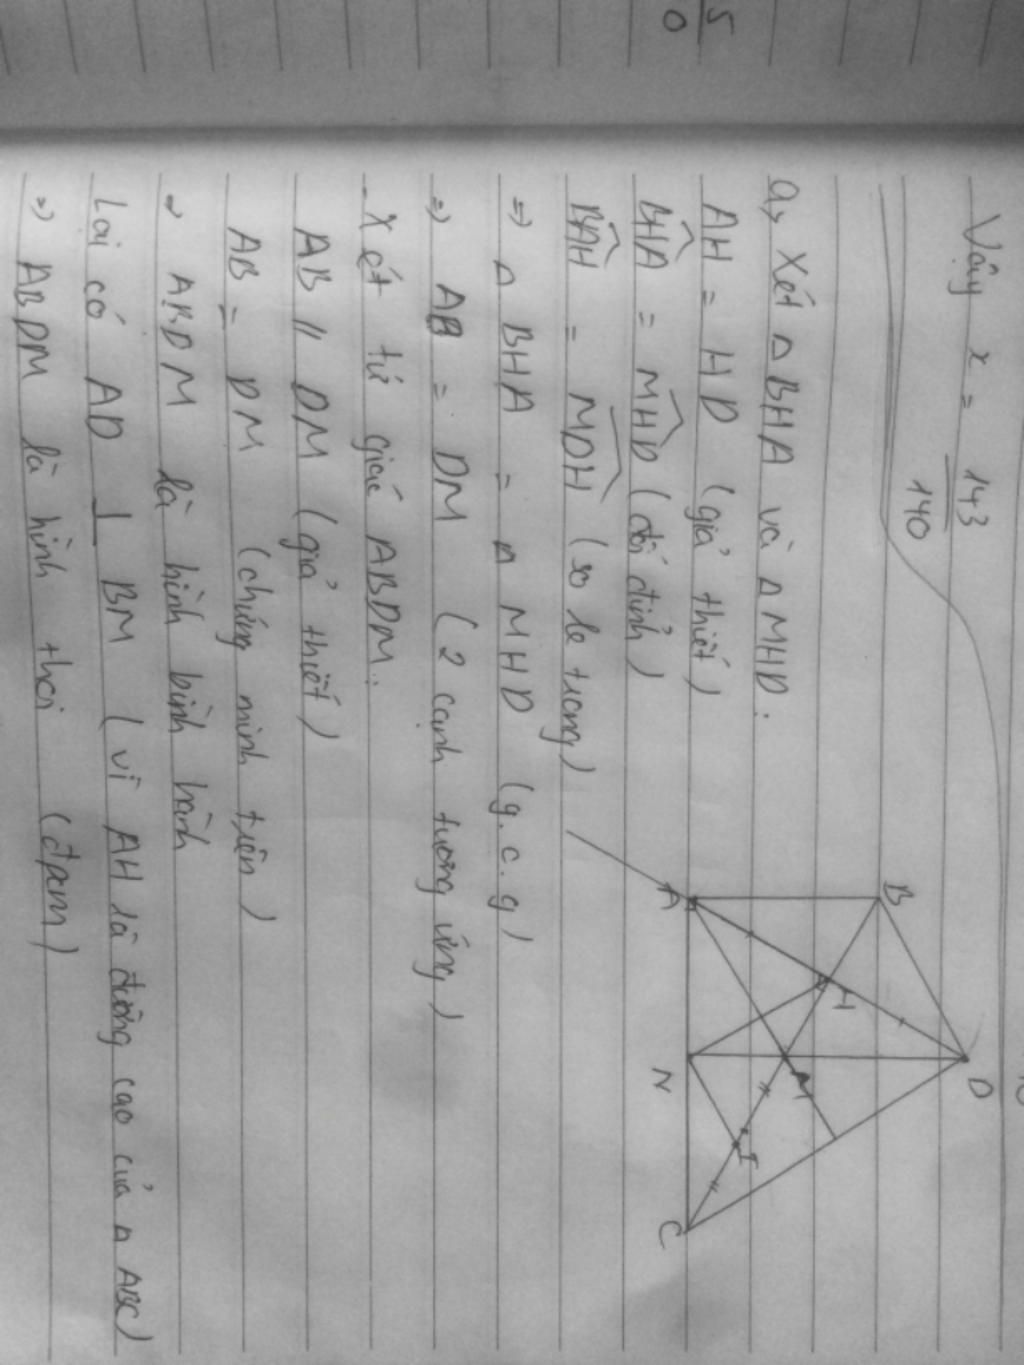 5
0
Vậy x = 143
140
a, Xét Δ BHA và Δ MHD :
AH = HD (giả thiết)
BHA = MHD (đối đỉnh)
BAH = MDH (so le trong)
=> Δ BHA = Δ MHD (g.c.g)
=> AB = DM (2 cạnh tương ứng)
Xét tứ giác ABDM:
AB // DM (giả thiết)
AB = DM (chứng minh trên)
=> ABDM là hình bình hành
Lại có AD ⊥ BM (vì AH là đường cao của Δ ABC)
=> ABDM là hình thoi (đpcm)
B
D
A
H
M
N
I
C